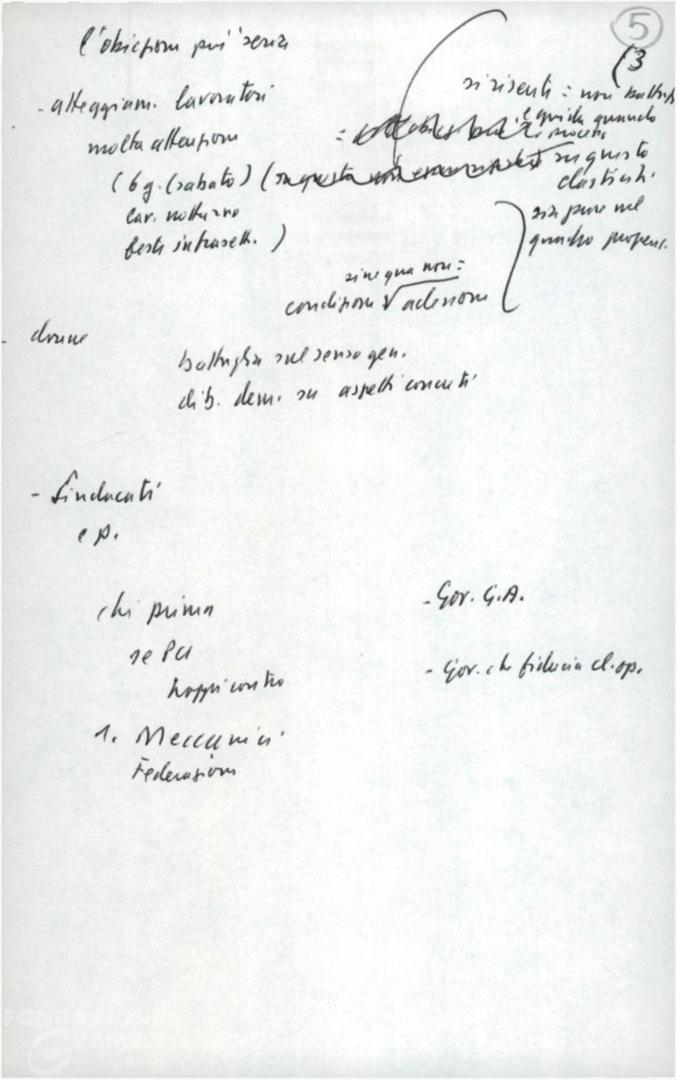 5
(3
l'obiezione più seria
- atteggiam. lavoratori
molta attenzione
(6 g. (sabato) (
lav. notturno
feste infrasett. )
si risenti = non battuta
e guida quando
su questo
elasticità
sia pure nel
quadro propens.
sine qua non =
condizione √ adesione
- donne
battaglia sul senso gen.
dib. dem. su aspetti concreti
- Sindacati
e p.
chi prima
se PCI
troppi contro
1. Meccanici
Federazioni
- Gov. G.A.
- Gov. che fiducia cl. op.
FONDAZIONE